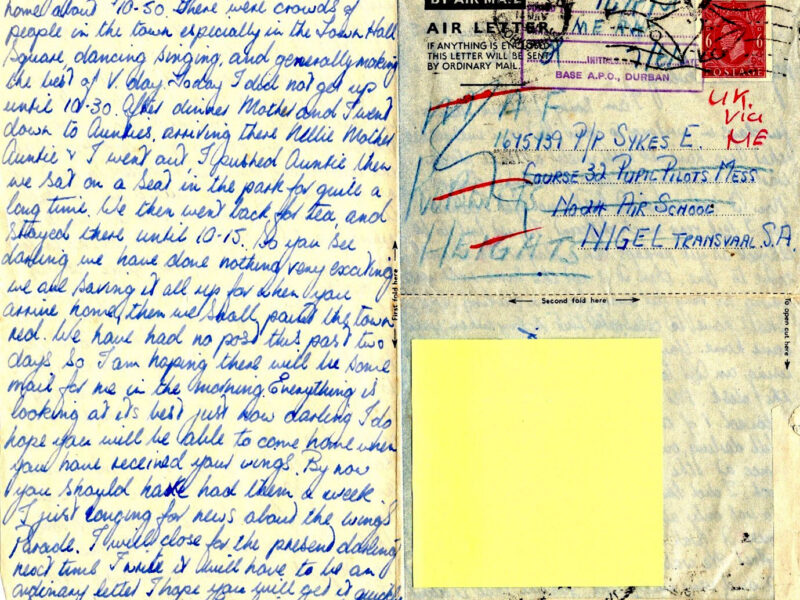 home about 10-50 there were crowds of
people in the town especially in the Town Hall
Square, dancing singing, and generally making
the best of V. day. Today I did not get up
until 10-30. After dinner Mother and I went
down to Aunties, arriving there Nellie Mother
Auntie & I went out I pushed Auntie then
we sat on a seat in the park for quite a
long time. We then went back for tea, and
stayed there until 10-15. So you see
darling we have done nothing very exciting
we are saving it all up for when you
arrive home, then we shall paint the town
red. We have had no post this past two
days so I am hoping there will be some
mail for me in the morning. Everything is
looking at its best just now darling I do
hope you will be able to come home when
you have received your wings. By now
you should have had them a week
I just longing for news about the wings
Parade. I will close for the present darling
next time I write it will have to be an
ordinary letter I hope you will get it quickly
BY AIR MAIL
AIR LETTER
IF ANYTHING IS ENCLOSED
THIS LETTER WILL BE SENT
BY ORDINARY MAIL.
INITIALS
DATE
BASE A.P.O., DURBAN
6 6
POSTAGE
U.K.
via
ME
1675939 P/P SYKES E.
COURSE 32 PUPIL PILOTS MESS
AIR SCHOOL
NIGEL TRANSVAAL S.A.
HEIGHTS
First fold here
Second fold here
To open cut here